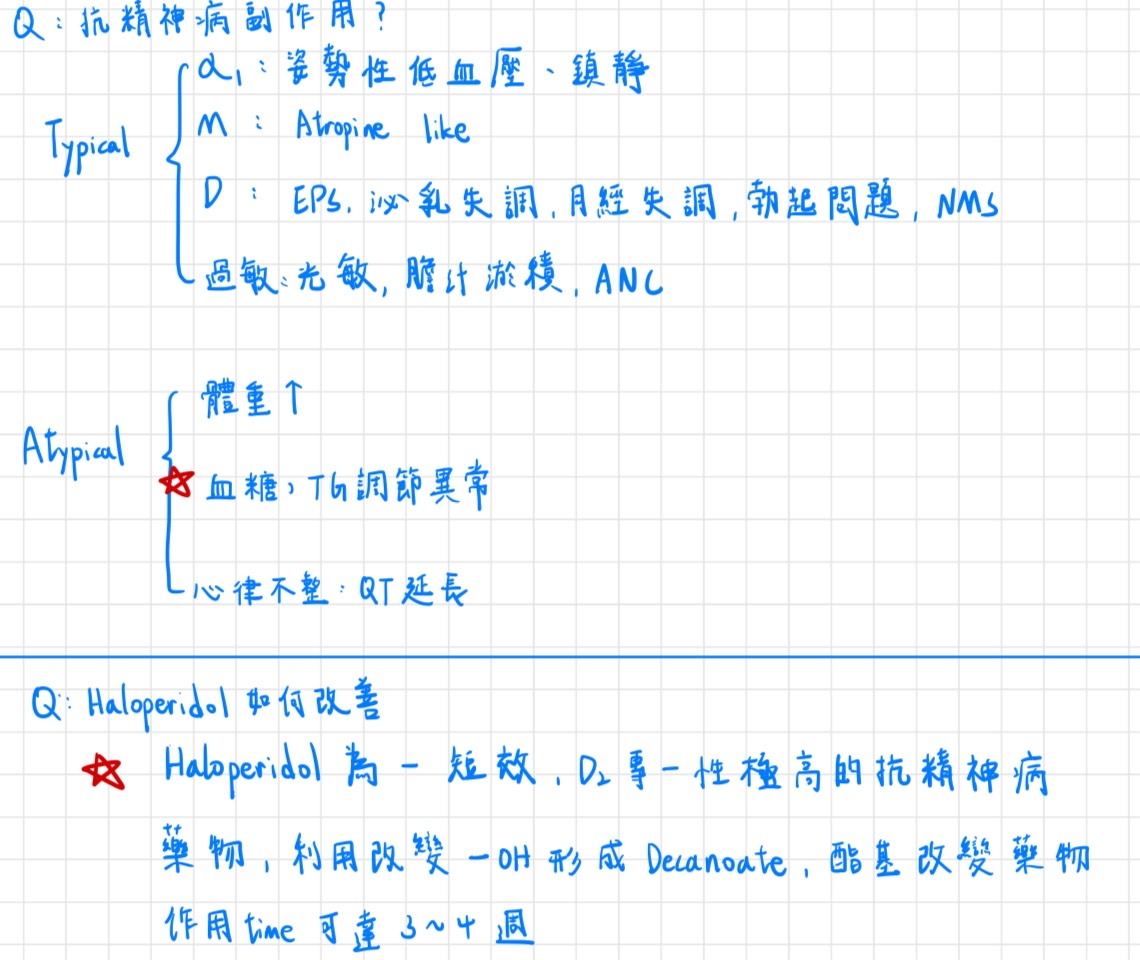 Q：抗精神病副作用？
α₁：姿勢性低血壓、鎮靜
Typical
M：Atropine like
D：EPS, 泌乳失調, 月經失調, 勃起問題, NMS
過敏：光敏, 膽汁淤積, ANC
體重↑
Atypical
血糖, TG調節異常
心律不整：QT延長
Q：Haloperidol 如何改善
Haloperidol 為一短效, D₂專一性極高的抗精神病
藥物, 利用改變-OH形成Decanoate, 酯基改變藥物
作用time可達3~4週